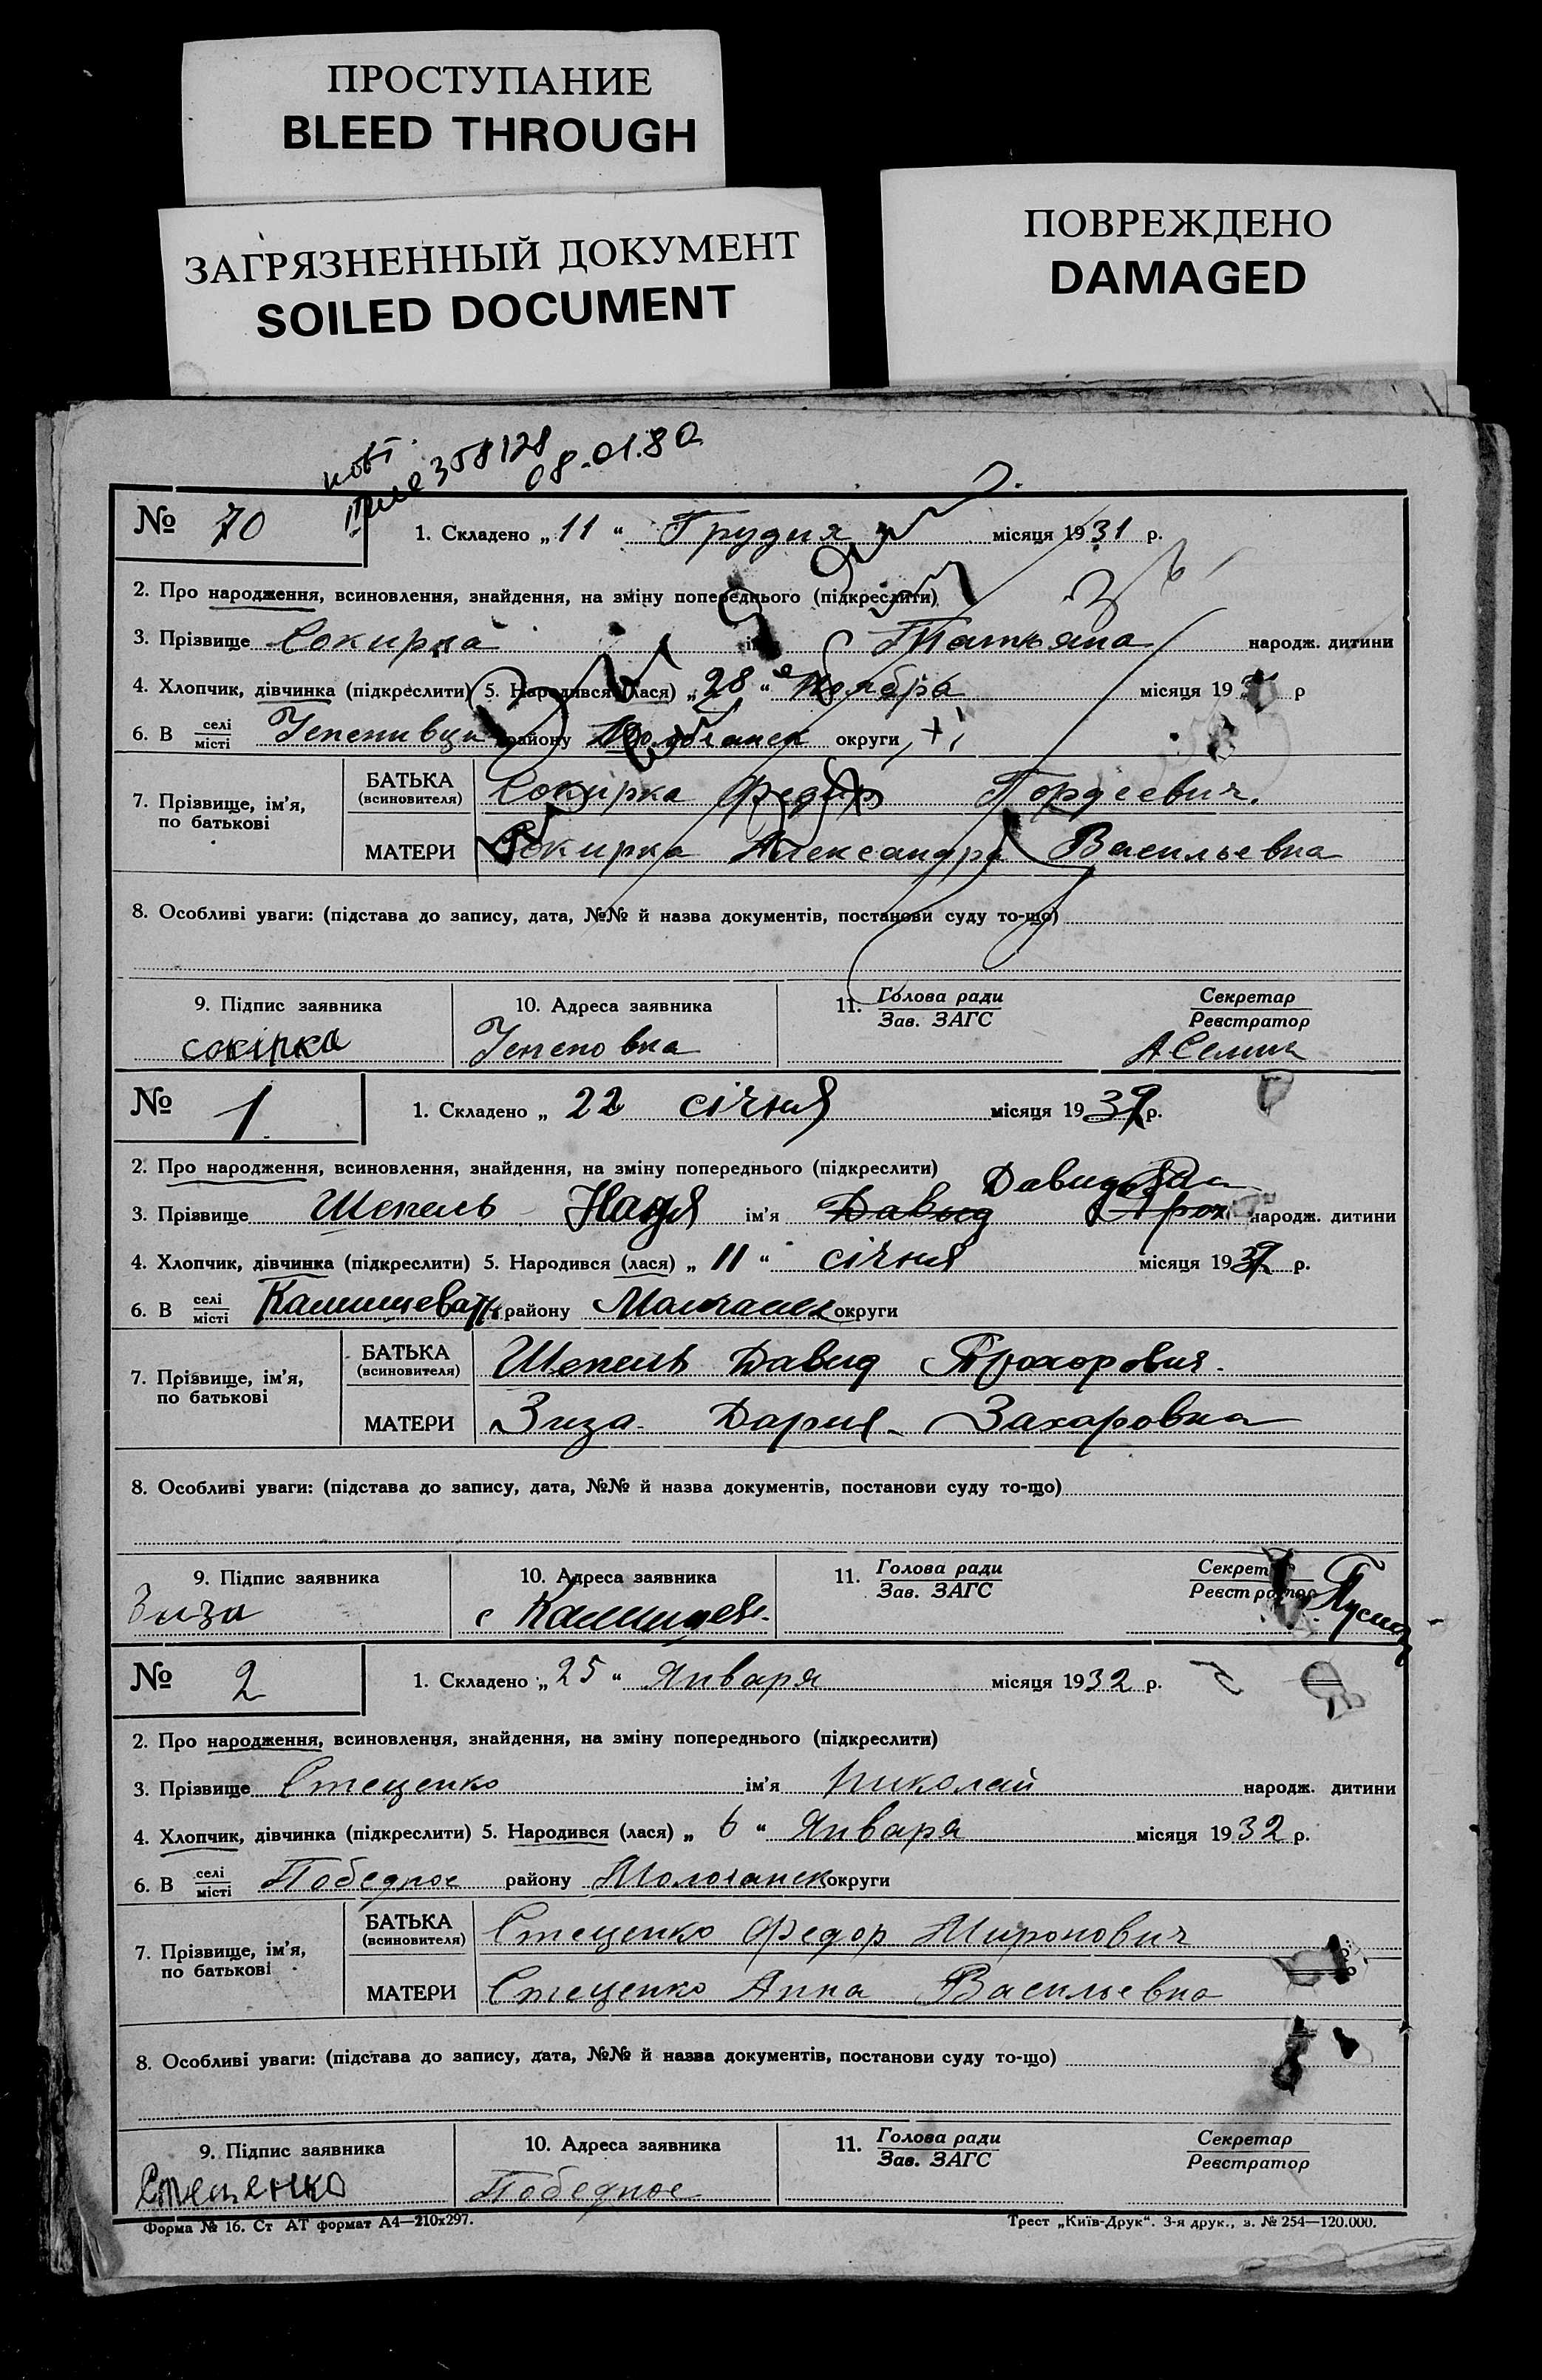 ПРОСТУПАНИЕ
BLEED THROUGH
ЗАГРЯЗНЕННЫЙ ДОКУМЕНТ
SOILED DOCUMENT
ПОВРЕЖДЕНО
DAMAGED
358128
08.01.80
№ 70
1. Складено „ 11 “ Грудня місяця 1931 р.
2. Про народження, всиновлення, знайдення, на зміну попереднього (підкреслити)
3. Прізвище Сокирка Татьяна народж. дитини
4. Хлопчик, дівчинка (підкреслити) 5. Народився (лася) „ 28 “ Ноября місяця 19 р
6. В селі місті району округи
7. Прізвище, ім'я, по батькові
БАТЬКА (всиновителя) Сокирка Федир Гордеевич.
МАТЕРИ Сокирка Александра Васильевна
8. Особливі уваги: (підстава до запису, дата, №№ й назва документів, постанови суду то-що)
9. Підпис заявника 10. Адреса заявника 11. Голова ради Зав. ЗАГС Секретар Реєстратор
сокірка
№ 1
1. Складено „ 22 січня місяця 1932 р.
2. Про народження, всиновлення, знайдення, на зміну попереднього (підкреслити)
3. Прізвище Шепель Надя ім'я Давид народж. дитини
4. Хлопчик, дівчинка (підкреслити) 5. Народився (лася) „ 11 “ січня місяця 1932 р.
6. В селі місті району округи
7. Прізвище, ім'я, по батькові
БАТЬКА (всиновителя) Шепель Давид Прохорович.
МАТЕРИ Зиза Дария Захаровна
8. Особливі уваги: (підстава до запису, дата, №№ й назва документів, постанови суду то-що)
9. Підпис заявника 10. Адреса заявника 11. Голова ради Зав. ЗАГС Секретар Реєстратор
Зиза
№ 2
1. Складено „ 25 “ Января місяця 1932 р.
2. Про народження, всиновлення, знайдення, на зміну попереднього (підкреслити)
3. Прізвище Стеценко ім'я Николай народж. дитини
4. Хлопчик, дівчинка (підкреслити) 5. Народився (лася) „ 6 “ Января місяця 1932 р.
6. В селі місті Победное району Молочанск округи
7. Прізвище, ім'я, по батькові
БАТЬКА (всиновителя) Стеценко Федор Миронович
МАТЕРИ Стеценко Анна Васильевна
8. Особливі уваги: (підстава до запису, дата, №№ й назва документів, постанови суду то-що)
9. Підпис заявника 10. Адреса заявника 11. Голова ради Зав. ЗАГС Секретар Реєстратор
Стеценко Победное
Форма № 16. Ст АТ формат А4—210х297. Трест „Київ-Друк“. 3-я друк., з. № 254—120.000.